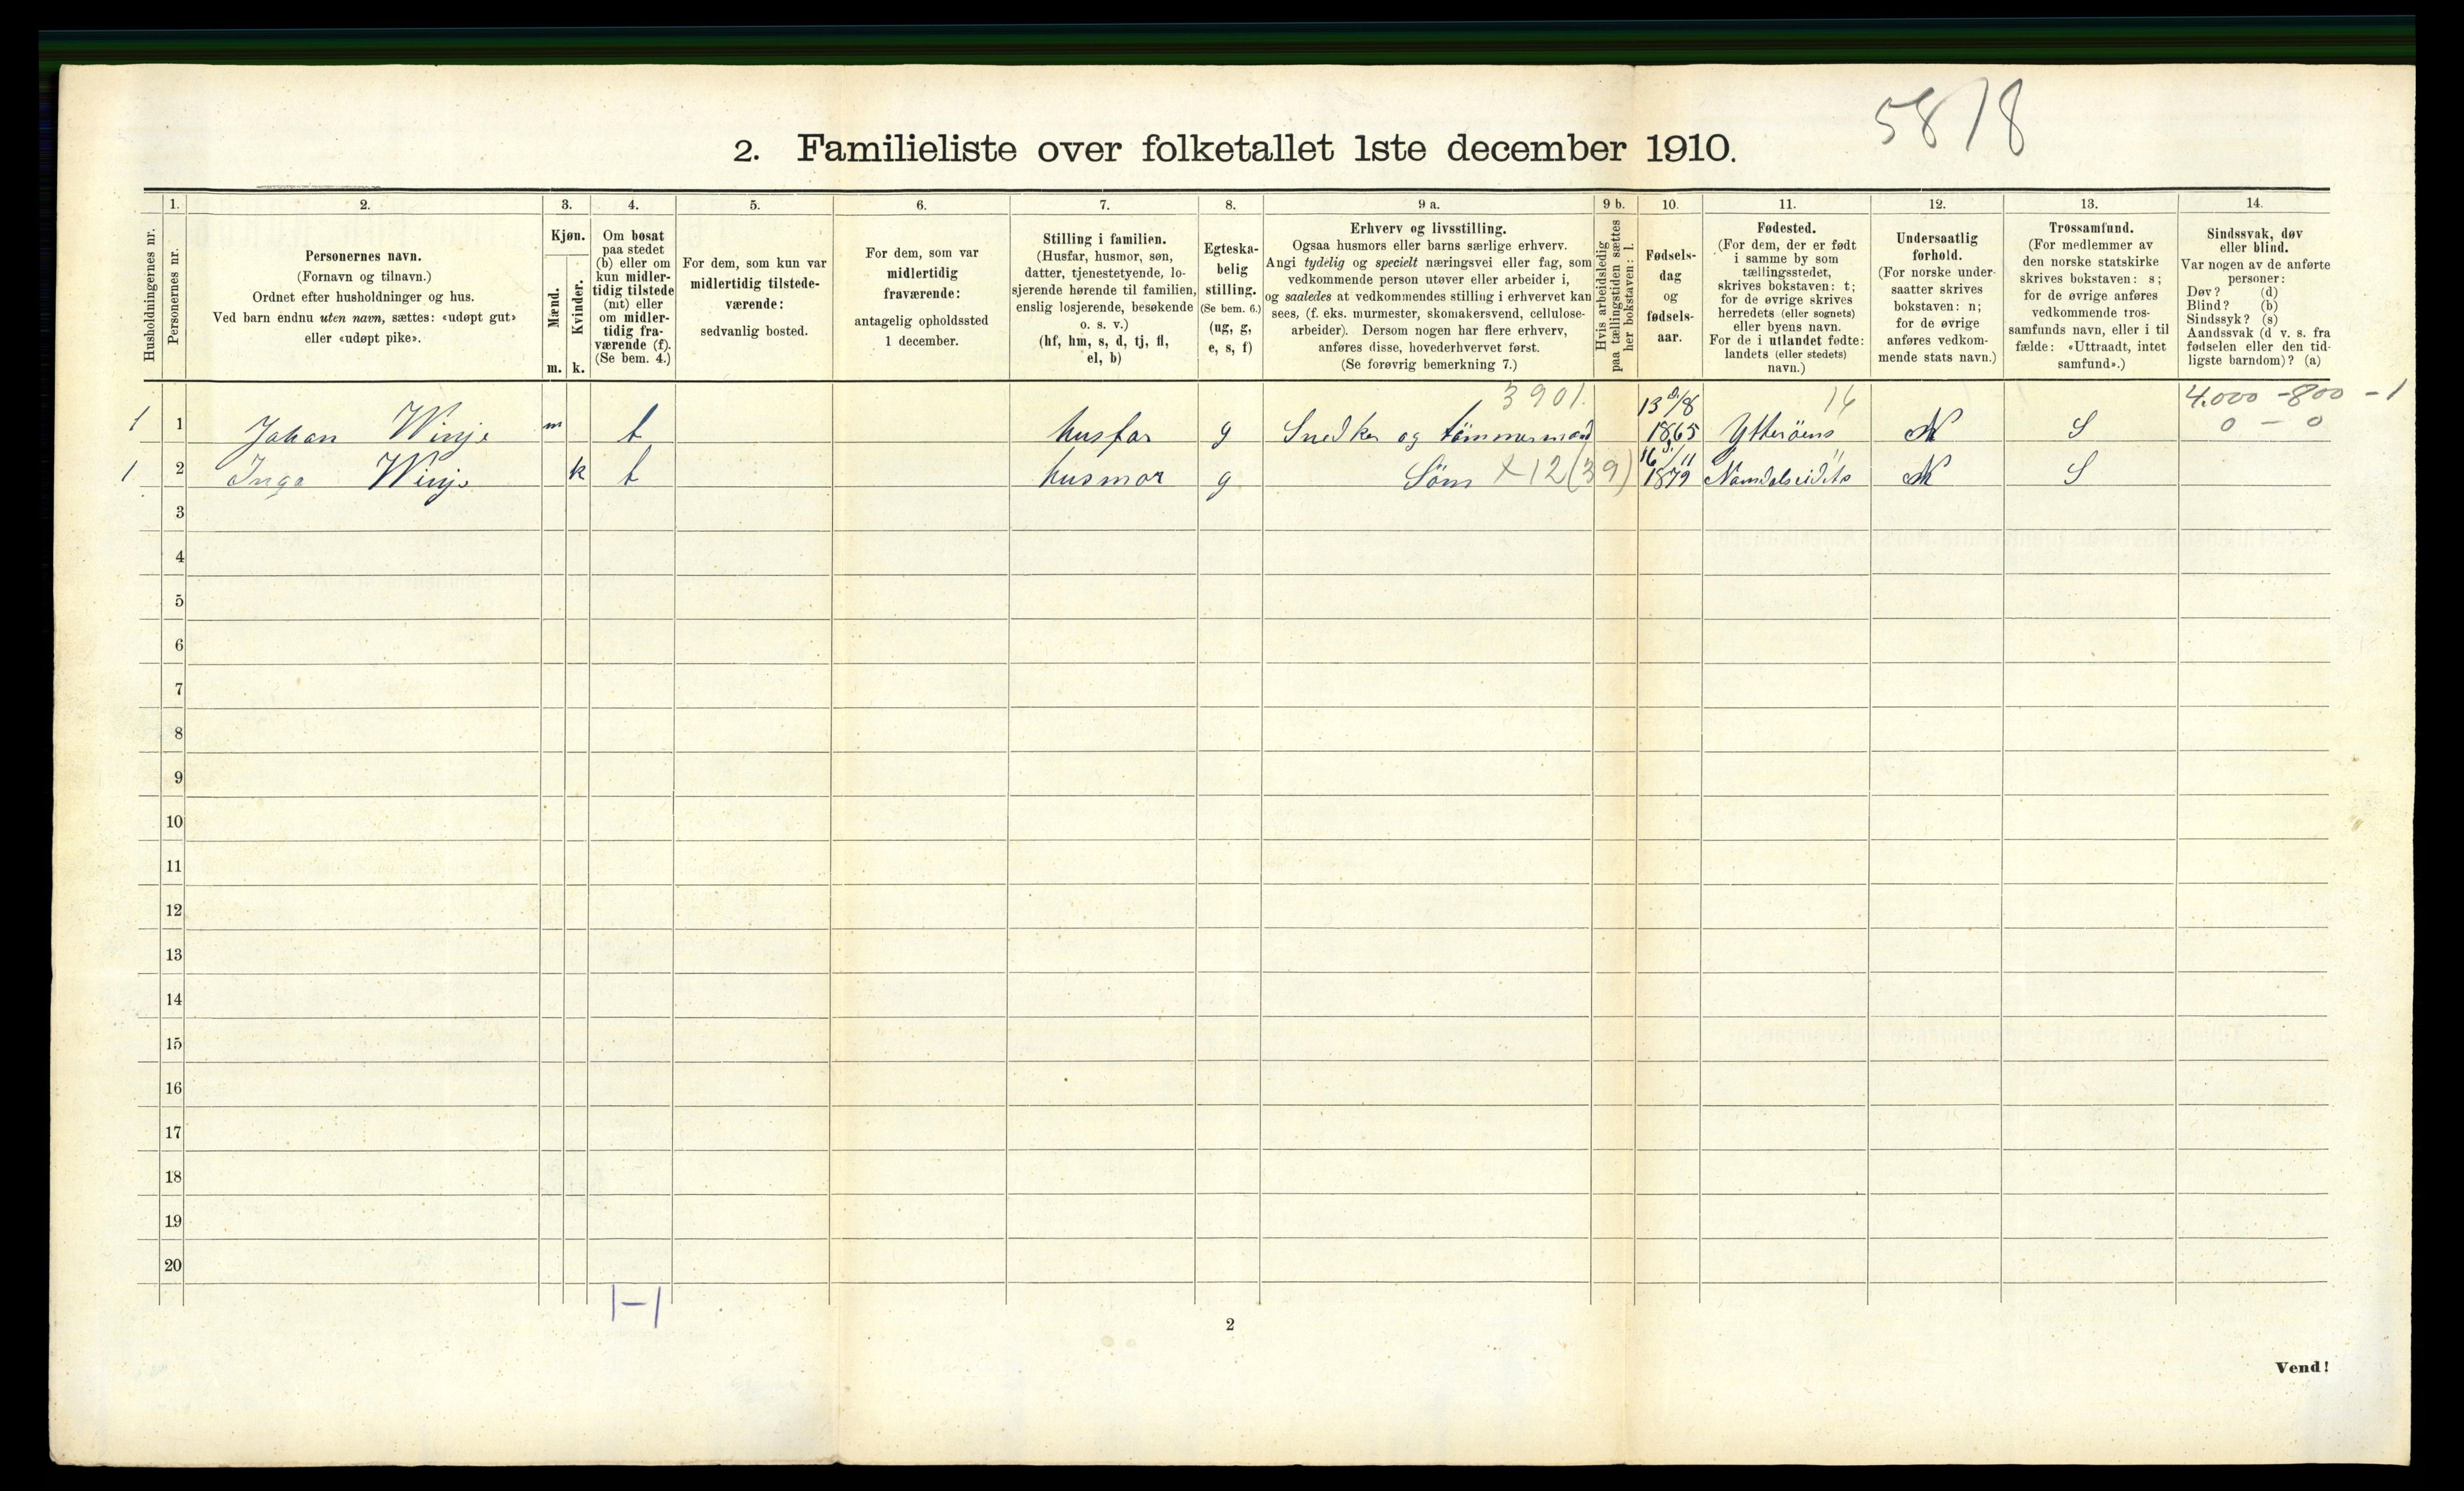 58/8
2. Familieliste over folketallet 1ste december 1910.
1. 2. 3. 4. 5. 6. 7. 8. 9 a. 9 b. 10. 11. 12. 13. 14.
Husholdningernes nr.
Personernes nr.
Personernes navn.
(Fornavn og tilnavn.)
Ordnet efter husholdninger og hus.
Ved barn endnu uten navn, sættes: «udøpt gut»
eller «udøpt pike».
Kjøn.
Mænd.
Kvinder.
m. k.
Om bosat
paa stedet
(b) eller om
kun midler-
tidig tilstede
(mt) eller
om midler-
tidig fra-
værende (f).
(Se bem. 4.)
For dem, som kun var
midlertidig tilstede-
værende:
sedvanlig bosted.
For dem, som var
midlertidig
fraværende:
antagelig opholdssted
1 december.
Stilling i familien.
(Husfar, husmor, søn,
datter, tjenestetyende, lo-
sjerende hørende til familien,
enslig losjerende, besøkende
o. s. v.)
(hf, hm, s, d, tj, fl,
el, b)
Egteska-
belig
stilling.
(Se bem. 6.)
(ug, g,
e, s, f)
Erhverv og livsstilling.
Ogsaa husmors eller barns særlige erhverv.
Angi tydelig og specielt næringsvei eller fag, som
vedkommende person utøver eller arbeider i,
og saaledes at vedkommendes stilling i erhvervet kan
sees, (f. eks. murmester, skomakersvend, cellulose-
arbeider). Dersom nogen har flere erhverv,
anføres disse, hovederhvervet først.
(Se forøvrig bemerkning 7.)
Hvis arbeidsledig
paa tællingstiden sættes
her bokstaven: l.
Fødsels-
dag
og
fødsels-
aar.
Fødested.
(For dem, der er født
i samme by som
tællingsstedet,
skrives bokstaven: t;
for de øvrige skrives
herredets (eller sognets)
eller byens navn.
For de i utlandet fødte:
landets (eller stedets)
navn.)
Undersaatlig
forhold.
(For norske under-
saatter skrives
bokstaven: n;
for de øvrige
anføres vedkom-
mende stats navn.)
Trossamfund.
(For medlemmer av
den norske statskirke
skrives bokstaven: s;
for de øvrige anføres
vedkommende tros-
samfunds navn, eller i til
fælde: «Uttraadt, intet
samfund».)
Sindssvak, døv
eller blind.
Var nogen av de anførte
personer:
Døv? (d)
Blind? (b)
Sindssyk? (s)
Aandssvak (d v. s. fra
fødselen eller den tid-
ligste barndom)? (a)
3901. 13/8 16 4.000 - 800 - 1
1 1 Johan Winje m b husfar g Snedker og tömmermand 1865 Ytteröens N S 0 - 0
16/11 "
1 2 Inga Winje k b husmor g Söm x 12 (39) 1879 N S
3
4
5
6
7
8
9
10
11
12
13
14
15
16
17
18
19
20
1-1
2
Vend!